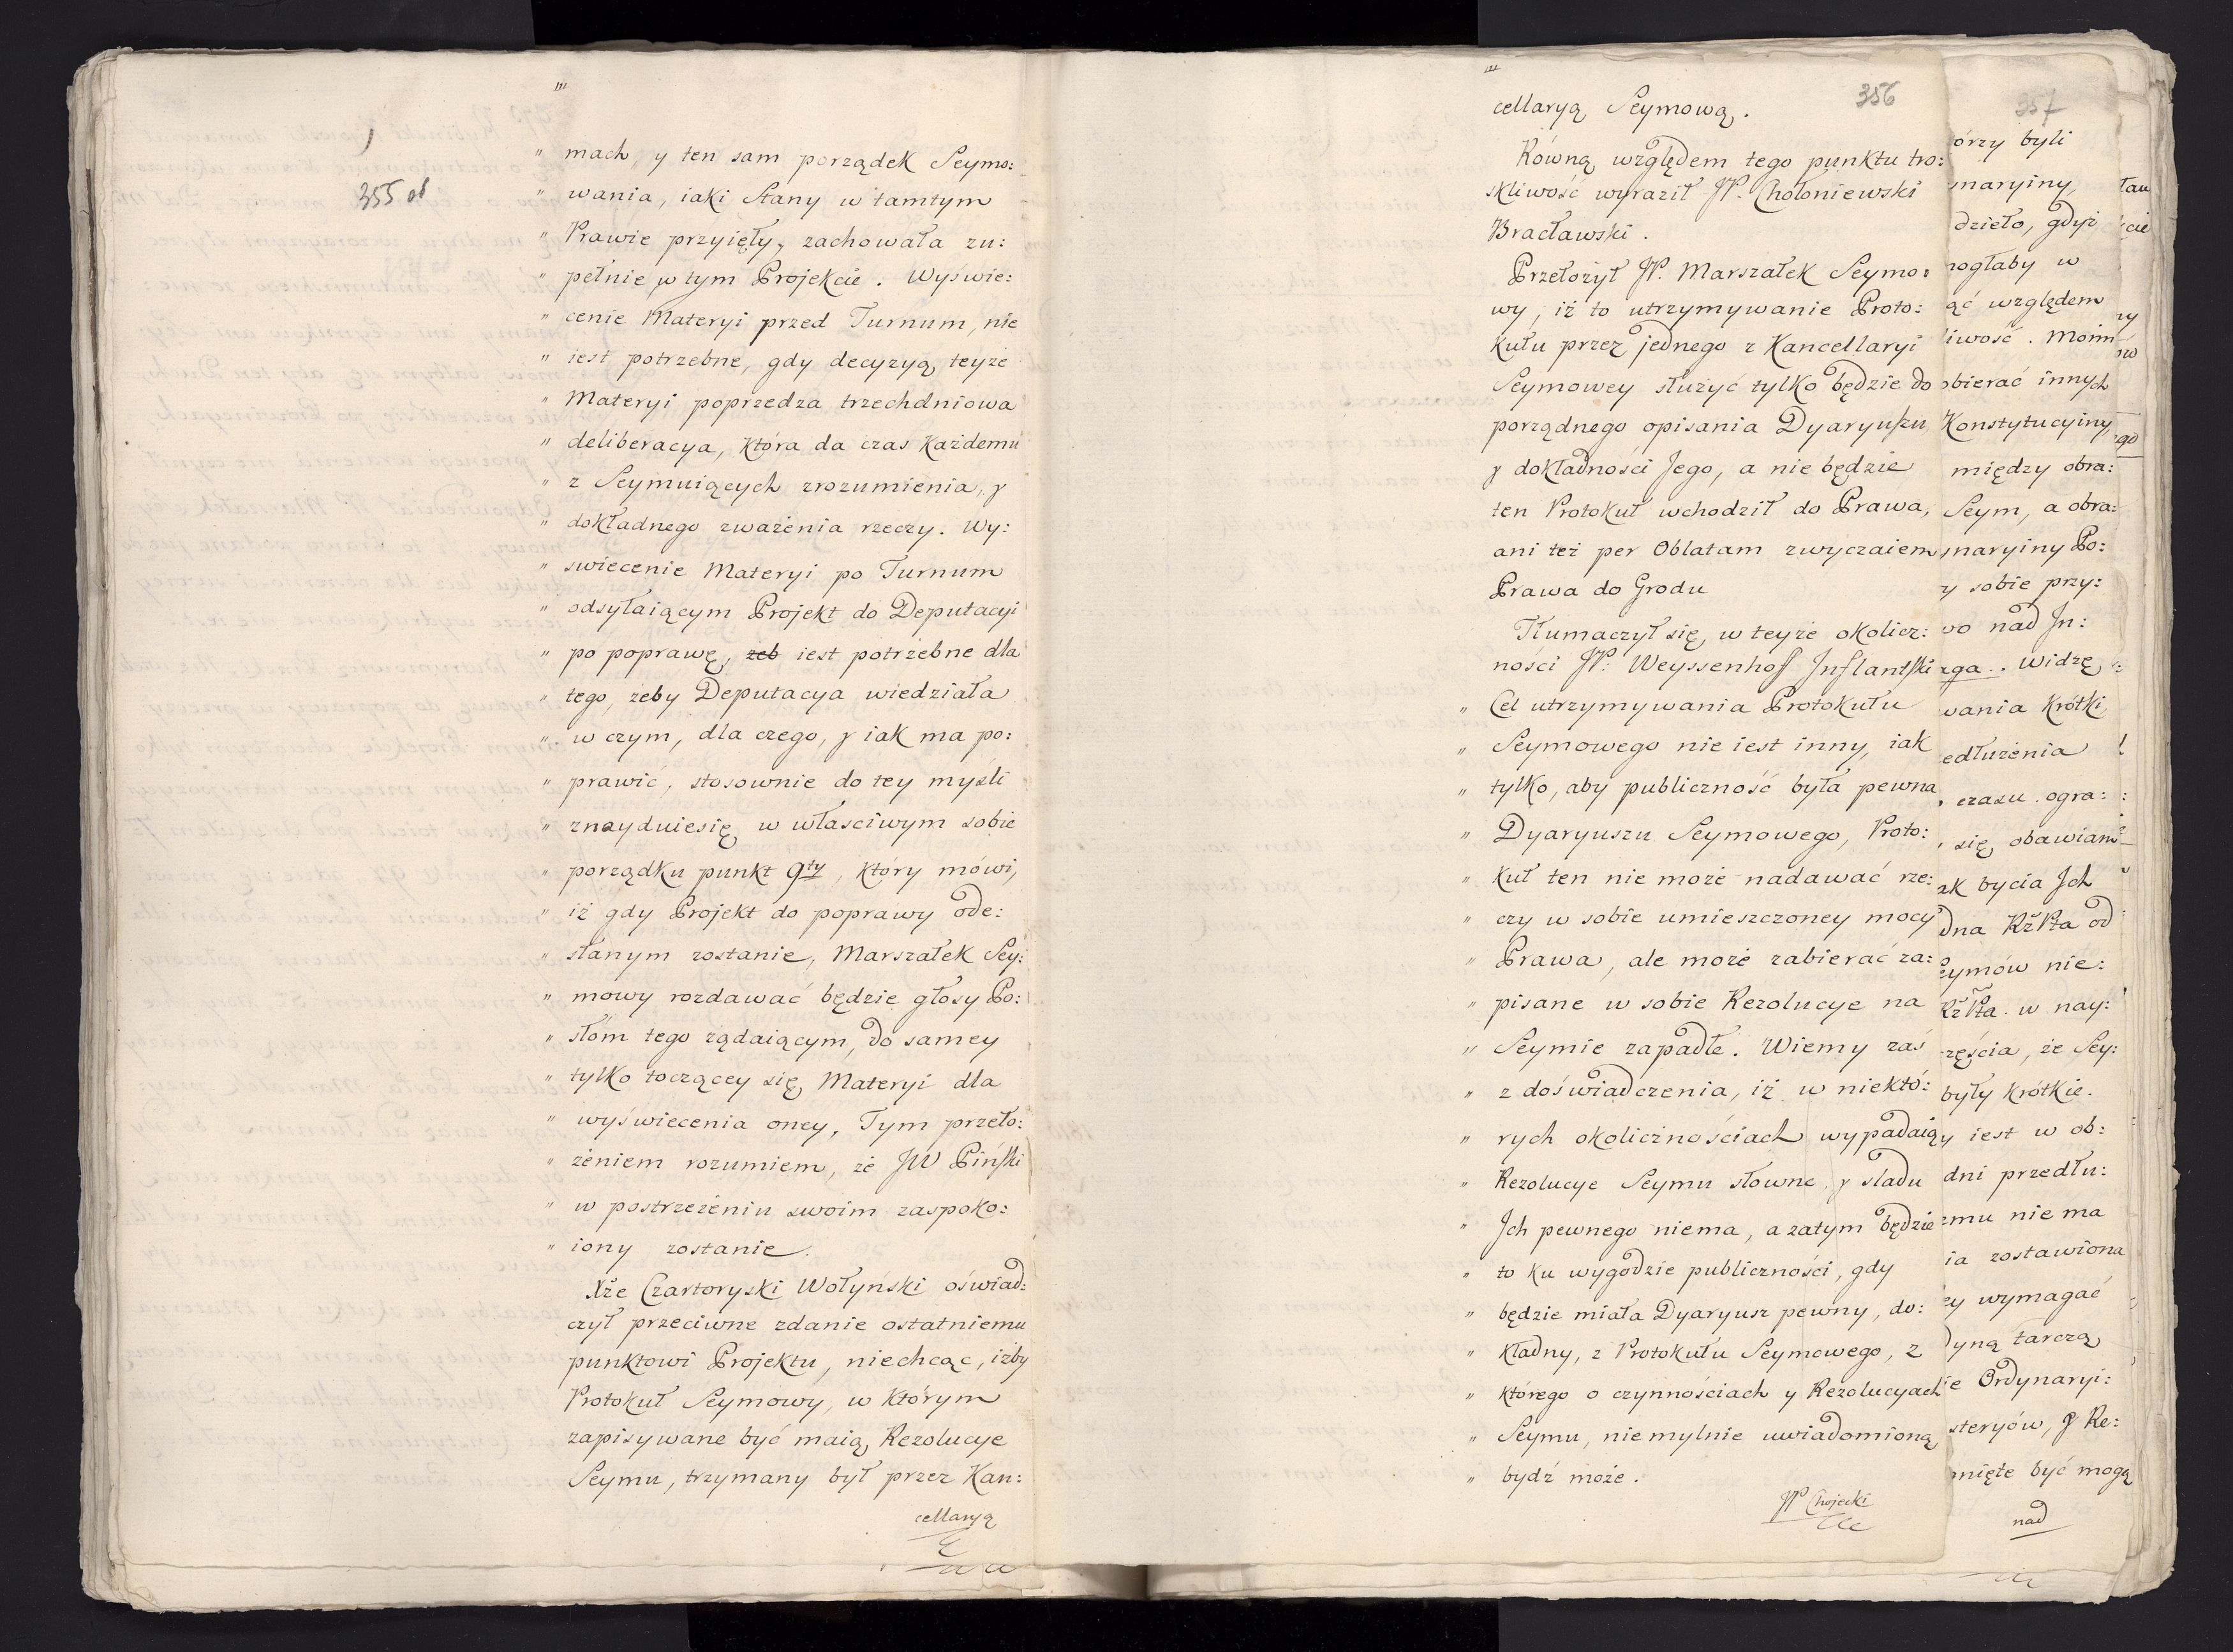 355 od
„ mach, y ten sam porządek Seymo:
„ wania, iaki Stany w tamtym
„ Prawie przyięły, zachowała zu:
„ pełnie w tym Projekcie. Wyświe:
„ cenie Materyi przed Turnum, nie
„ iest potrzebne, gdy decyzyą teyże
„ Materyi poprzedza trzechdniowa
„ deliberacya, która da czas Każdemu
„ z Seymuiących zrozumienia, y
„ dokładnego zważenia rzeczy. Wy:
„ swiecenie Materyi po Turnum
„ odsyłaiącym Projekt do Deputacyi
„ po poprawę, zeb iest potrzebne dla
„ tego, żeby Deputacya wiedziała
„ w czym, dla czego, y iak ma po:
„ prawić, stosownie do tey myśli
„ znayduiesię w własciwym sobie
„ porządku punkt 9ty, który mówi,
„ iż gdy Projekt do poprawy ode:
„ słanym zostanie, Marszałek Sey:
„ mowy rozdawać będzie głosy Po:
„ słom tego żądaiącym, do samey
„ tylko toczącey się Materyi dla
„ wyświecenia oney, Tym przeło:
„ żeniem rozumiem, że JW Pińſki
„ w postrzeżeniu swoim zaspoko:
„ iony zostanie.
Xże Czartoryski Wołyński oświad:
czył przeciwne zdanie ostatniemu
punktowi Projektu, niechcąc, iżby
Protokuł Seymowy, w którym
zapisywane być maią Rezolucye
Seymu, trzymany był przez Kan:
cellaryą
356
cellaryą Seymową.
Równą względem tego punktu tro:
skliwość wyraził JP. Chołoniewski
Bracławski.
Przełożył JP. Marszałek Seymo:
wy, iż to utrzymywanie Proto:
kułu przez jednego z Kancellaryi
Seymowey służyć tylko będzie do
porządnego opisania Dyaryuſzu
y dokładności Jego, a nie będzie
ten Protokuł wchodził do Prawa,
ani też per Oblatam zwyczaiem
Prawa do Grodu
Tłumaczył się w teyże okolicz:
ności JP. Weyssenhof Inflantſki
„ Cel utrzymywania Protokułu
„ Seymowego nie iest inny, iak
„ tylko, aby publiczność była pewna
„ Dyaryuszu Seymowego, Proto:
„ kuł ten nie może nadawać rze:
„ czy w sobie umieszczoney mocy
„ Prawa, ale może zabierać za:
„ pisane w sobie Rezolucye na
„ Seymie zapadłe. Wiemy zaś
„ z doświadczenia, iż w niektó:
„ rych okolicznościach wypadaią
„ Rezolucye Seymu słowne, y sladu
„ Ich pewnego niema, a zatym będzie
„ to ku wygodzie publiczności, gdy
„ będzie miała Dyaryusz pewny, do:
„ kładny, z Protokułu Seymowego, z
„ którego o czynnościach y Rezolucyach
„ Seymu, niemylnie uwiadomioną
„ bydź może.
JP Chojecki
357
órzy byli
maryiny,
dzieło, gdyż
nogłaby w
ąć względem
iwość. Moim
obierać innych
Konstytucyiny
między obra:
Seym, a obra:
maryiny Po:
y sobie przy:
wo nad In:
ga. Widzę
wania krótki,
edłużenia
czasu ogra:
się obawiam
ak bycia Ich
dna RżPta od
eymów nie:
RżPta w nay:
zęścia, że Sey:
były krótkie.
y iest w ob:
dni przedłu:
zmu nie ma
ia zostawiona
ey wymagać
dyną tarczą
e Ordynaryi:
steryów, y Re:
mięte być mogą
nad